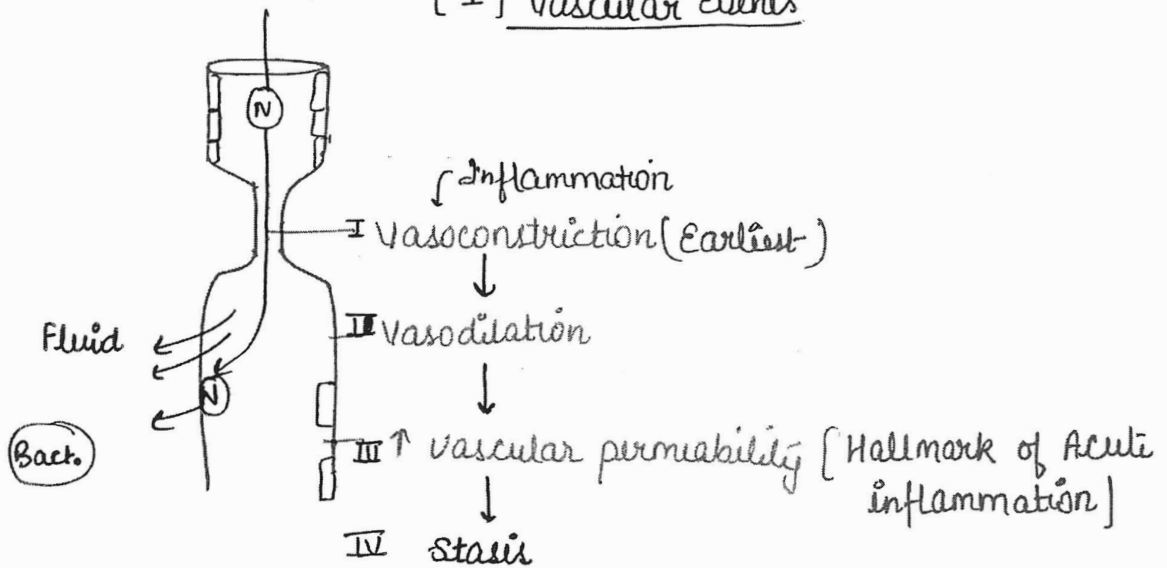 [I] Vascular Events
N
Inflammation
I Vasoconstriction (Earliest)
Fluid
II Vasodilation
N
Bact.
III ↑ Vascular permeability [Hallmark of Acute
inflammation]
IV Stasis